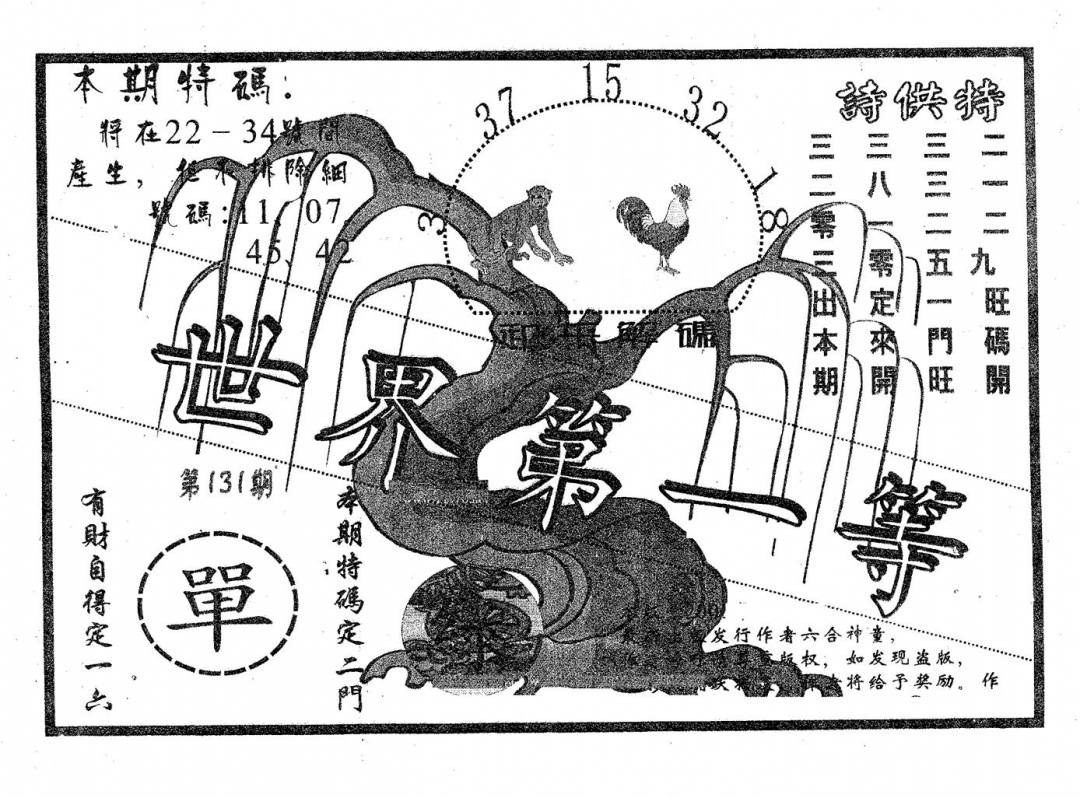 本期特碼：
將在22－34號間
產生，但不排除細
號碼：11、07、
45、42
37
15
32
18
特供詩
二一二九旺碼開
三三二五一門旺
三八一零定來開
三二零三出本期
碼
世界第一等
第131期
單
有財自得定一六
本期特碼定二門
发行作者六合神童，
版权，如发现盗版，
将给予奖励。作